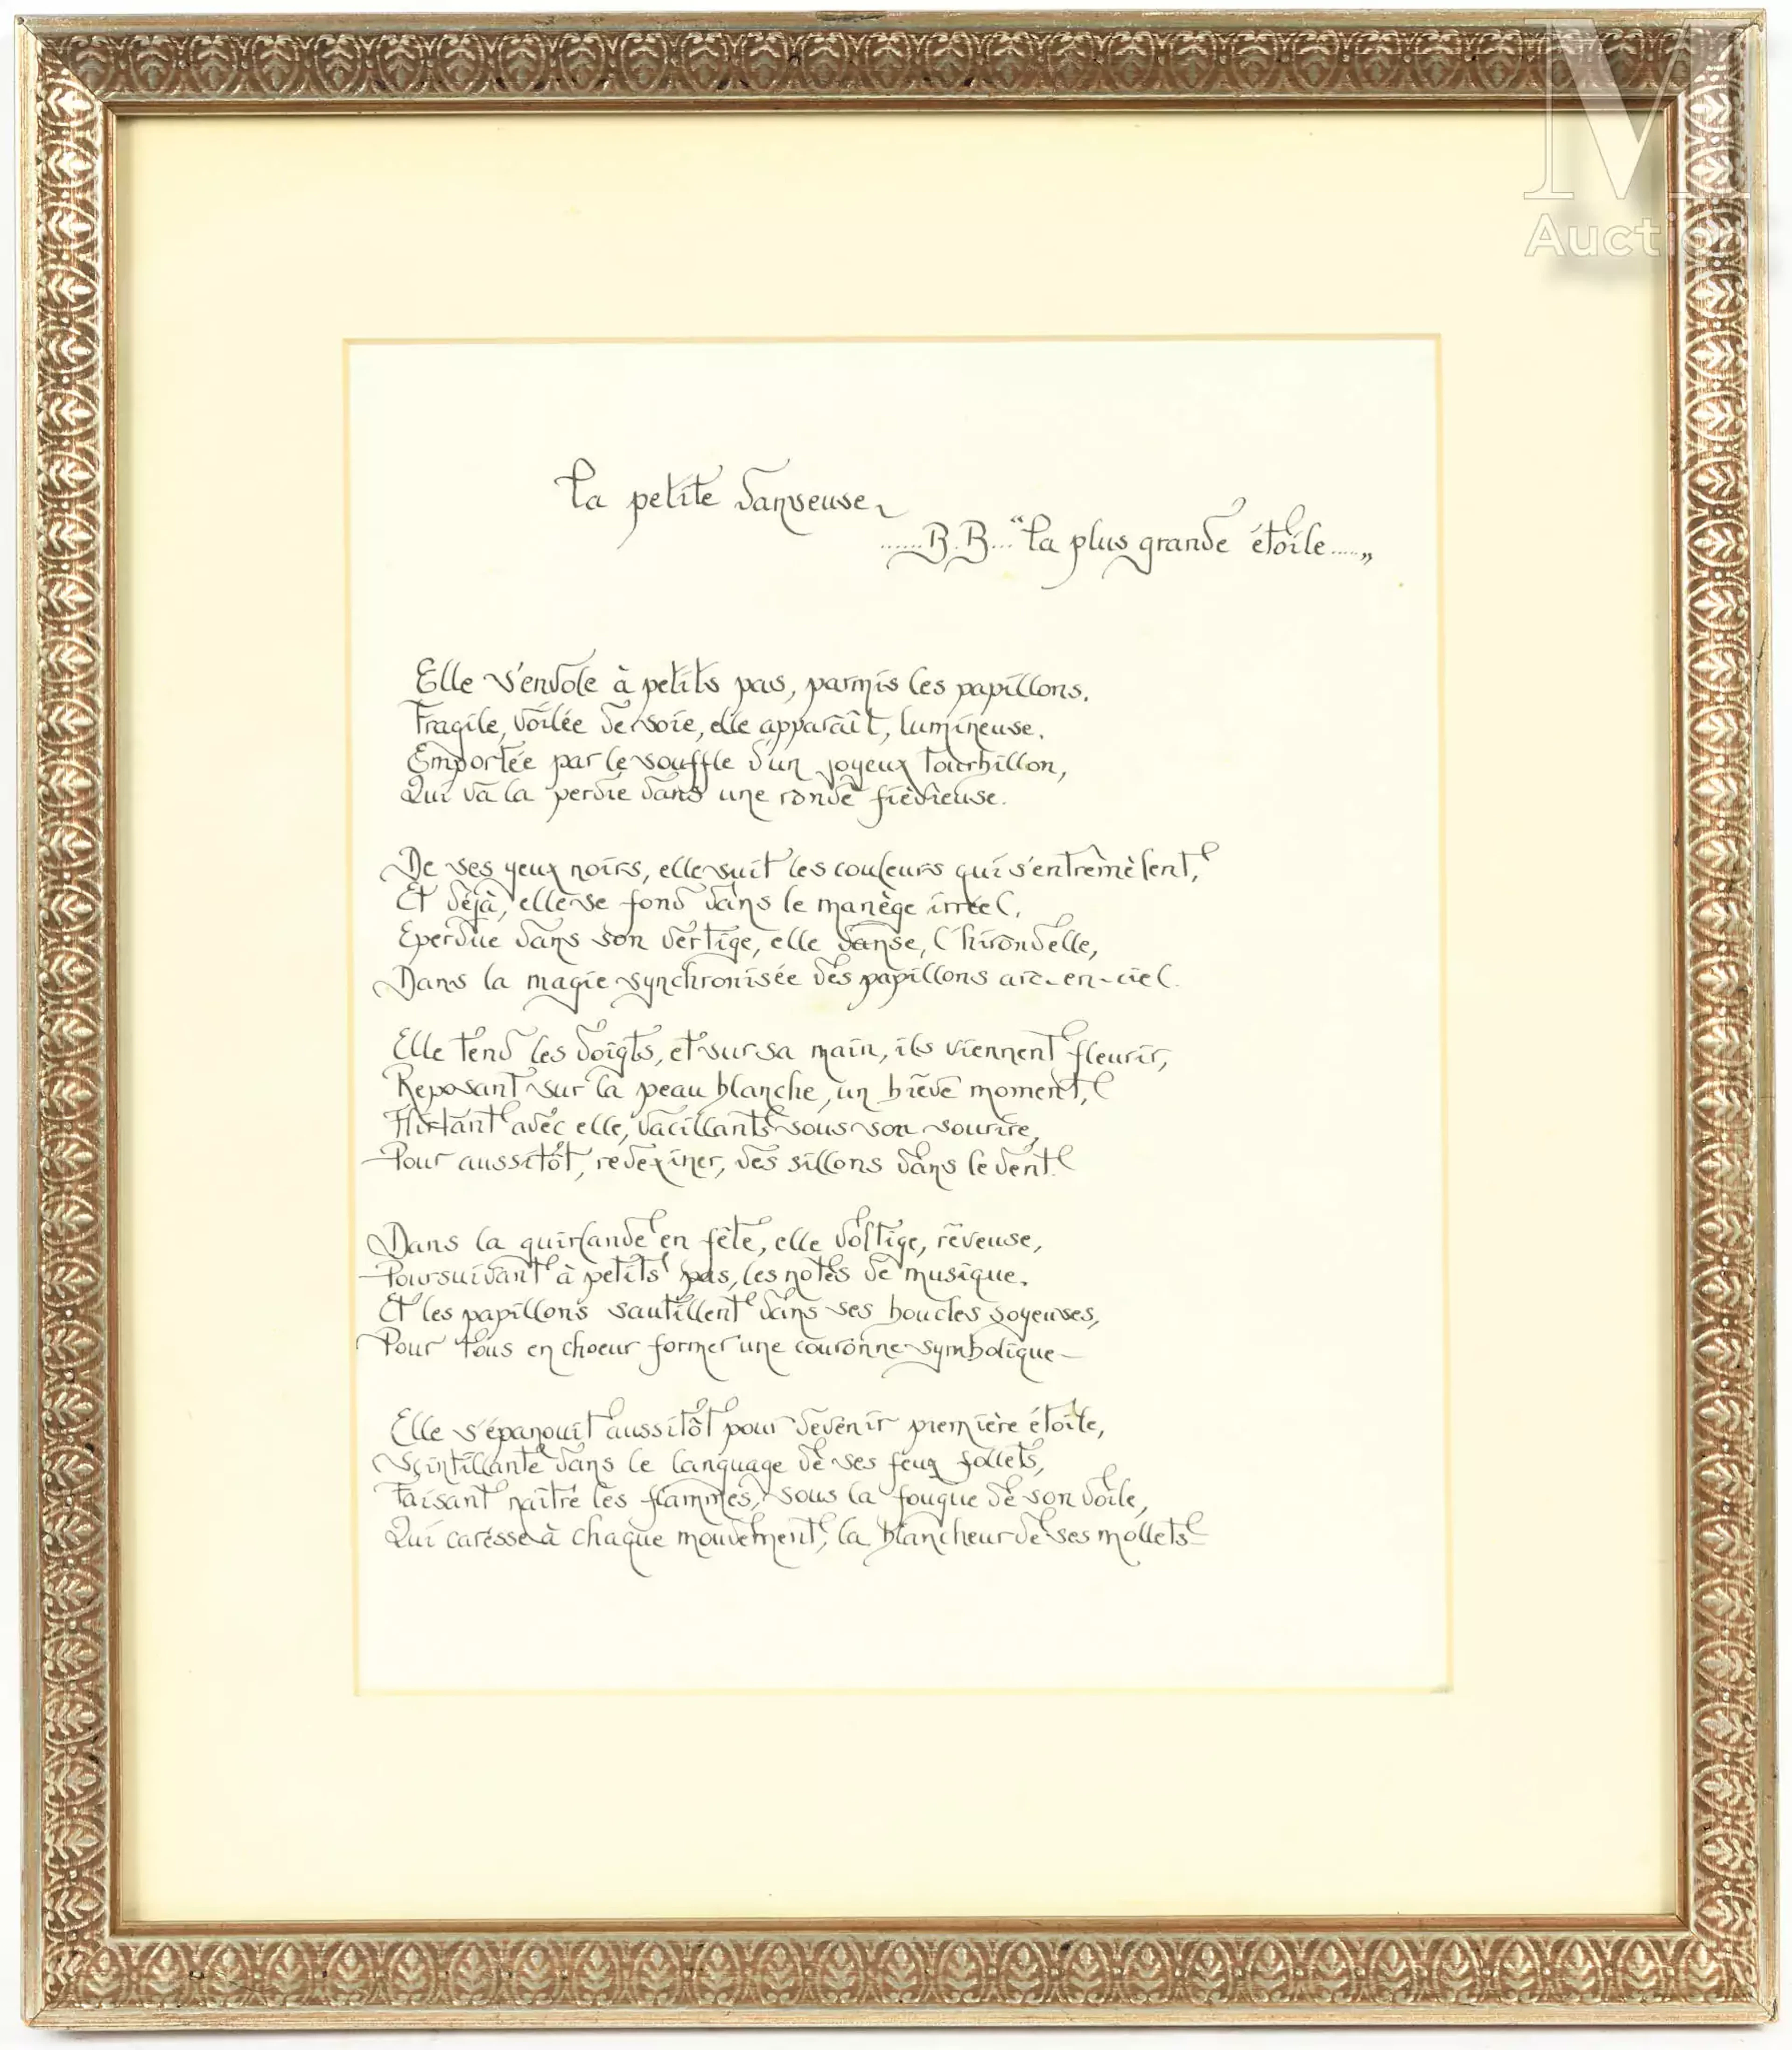 M
Auction
La petite danseuse
......B.B..."La plus grande étoile....."
Elle s'envole à petits pas, parmis les papillons.
Fragile, voilée de soie, elle apparaît, lumineuse.
Emportée par le souffle d'un joyeux tourbillon,
Qui va la perdre dans une ronde fiévreuse.
De ses yeux noirs, elle suit les couleurs qui s'entremêlent,
Et déjà, elle se fond dans le manège irréel.
Eperdue dans son vertige, elle danse, l'hirondelle,
Dans la magie synchronisée des papillons arc-en-ciel.
Elle tend les doigts, et sur sa main, ils viennent fleurir,
Reposant sur la peau blanche, un brève moment,
Flirtant avec elle, vacillants sous son sourire,
Pour aussitôt, redessiner, des sillons dans le vent.
Dans la guirlande en fête, elle voltige, rêveuse,
Poursuivant à petits pas, les notes de musique.
Et les papillons sautillent dans ses boucles soyeuses,
Pour tous en choeur former une couronne symbolique -
Elle s'épanouit aussitôt pour devenir première étoile,
Scintillante dans le language de ses feux follets,
Faisant naître les flammes, sous la fougue de son voile,
Qui caresse à chaque mouvement, la blancheur de ses mollets -